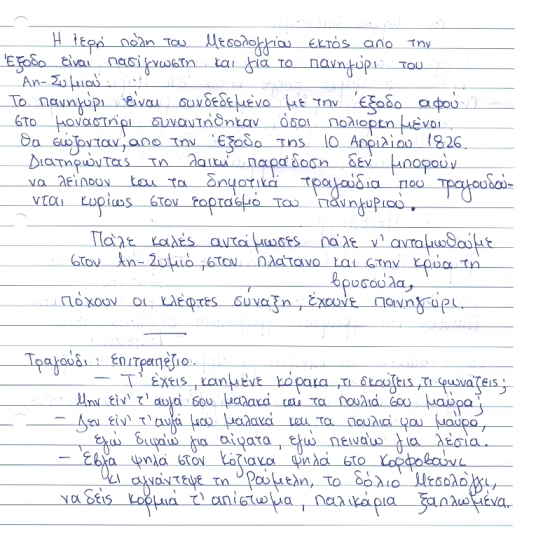 Η Ιερή πόλη του Μεσολογγίου εκτός απο την
Έξοδο είναι πασίγνωστη και για το πανηγύρι του
Αη-Συμιού.
Το πανηγύρι είναι συνδεδεμένο με την Έξοδο αφού
στο μοναστήρι συναντήθηκαν όσοι πολιορκημένοι
θα σώζονταν, απο την Έξοδο της 10 Απριλίου 1826.
Διατηρώντας τη λαική παράδοση δεν μπορούν
να λείπουν και τα δημοτικά τραγούδια που τραγουδού-
νται κυρίως στον εορτασμό του πανηγυριού.
Πάλε καλές αντάμωσες πάλε ν' ανταμωθούμε
στον Αη-Συμιό, στον πλάτανο και στην κρύα τη
βρυσούλα,
πόχουν οι κλέφτες σύναξη, έχουνε πανηγύρι.
Τραγούδι: επιτραπέζιο
– Τ' έχεις, καημένε κόρακα, τι σκούζεις, τι φωνάζεις;
Μην ειν' τ' αυγά σου μαλακά και τα πουλιά σου μαύρα;
– Δεν ειν' τ' αυγά μου μαλακά και τα πουλιά μου μαύρα,
εγώ διψάω για αίματα, εγώ πεινάω για λέσια.
– Έβγα ψηλά στον Κόζιακα ψηλά στο Κορφοβούνι
κι αγνάντεψε τη Ρούμελη, το δόλιο Μεσολόγγι,
να δεις κορμιά τ' απίστωμα, παλικάρια ξαπλωμένα.